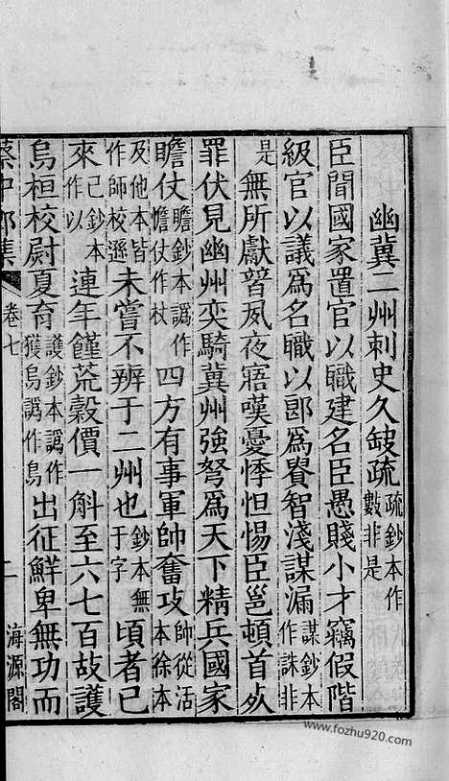 幽冀二州刺史久缺疏疏鈔本作數非是
臣聞國家置官以職建名臣愚賤小才竊假階
級官以議爲名職以郎爲貴智淺謀漏謀鈔本作誅非
是無所獻替夙夜寤嘆憂悸怛惕臣邕頓首死
罪伏見幽州奕騎冀州強弩爲天下精兵國家
瞻仗瞻鈔本譌作憺仗作杖四方有事軍帥奮攻帥從活本徐本
及他本皆作師校遜未嘗不辨于二州也鈔本無于字頃者已
來已鈔本作以連年饉荒穀價一斛至六七百故護
烏桓校尉夏育護鈔本譌作獲烏譌作鳥出征鮮卑無功而
蔡中郎集 卷七 二 海源閣
www.fozhu920.com